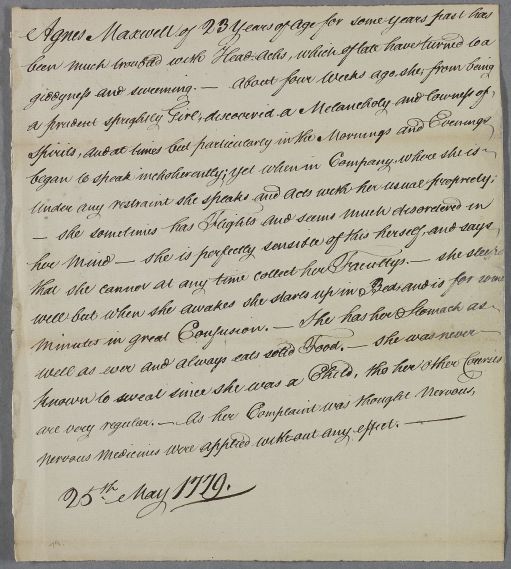 Agnes Maxwell of 23 Years of Age for some years past has
been much troubad with Head-Achs, which of late have turned to a
giddyness and sweeming. — About four Weeks ago, she, from being
a prudent sprightly Girl, discovered a Melancholy and lowness of
Spirits, and at times but particularly in the Mornings and Evenings
began to speak incoherently; yet when in Company, where she is
under any restraint she speaks and acts with her usual propriety;
— she sometimes has Flights and seems much disordered in
her Mind — she is perfectly sensible of this herself, and says
that she cannot at any time collect her Facultys. — she sleeps
well but when she awakes she starts up in Bed, and is for some
Minutes in great Confusion. — She has her Stomach as
well as ever and always eats solid Food. — she was never
known to sweat since she was a Child, tho her other Courses
are very regular. — As her Complaint was thought Nervous,
Nervous Medicines were applied without any effect. —
25th May 1779.